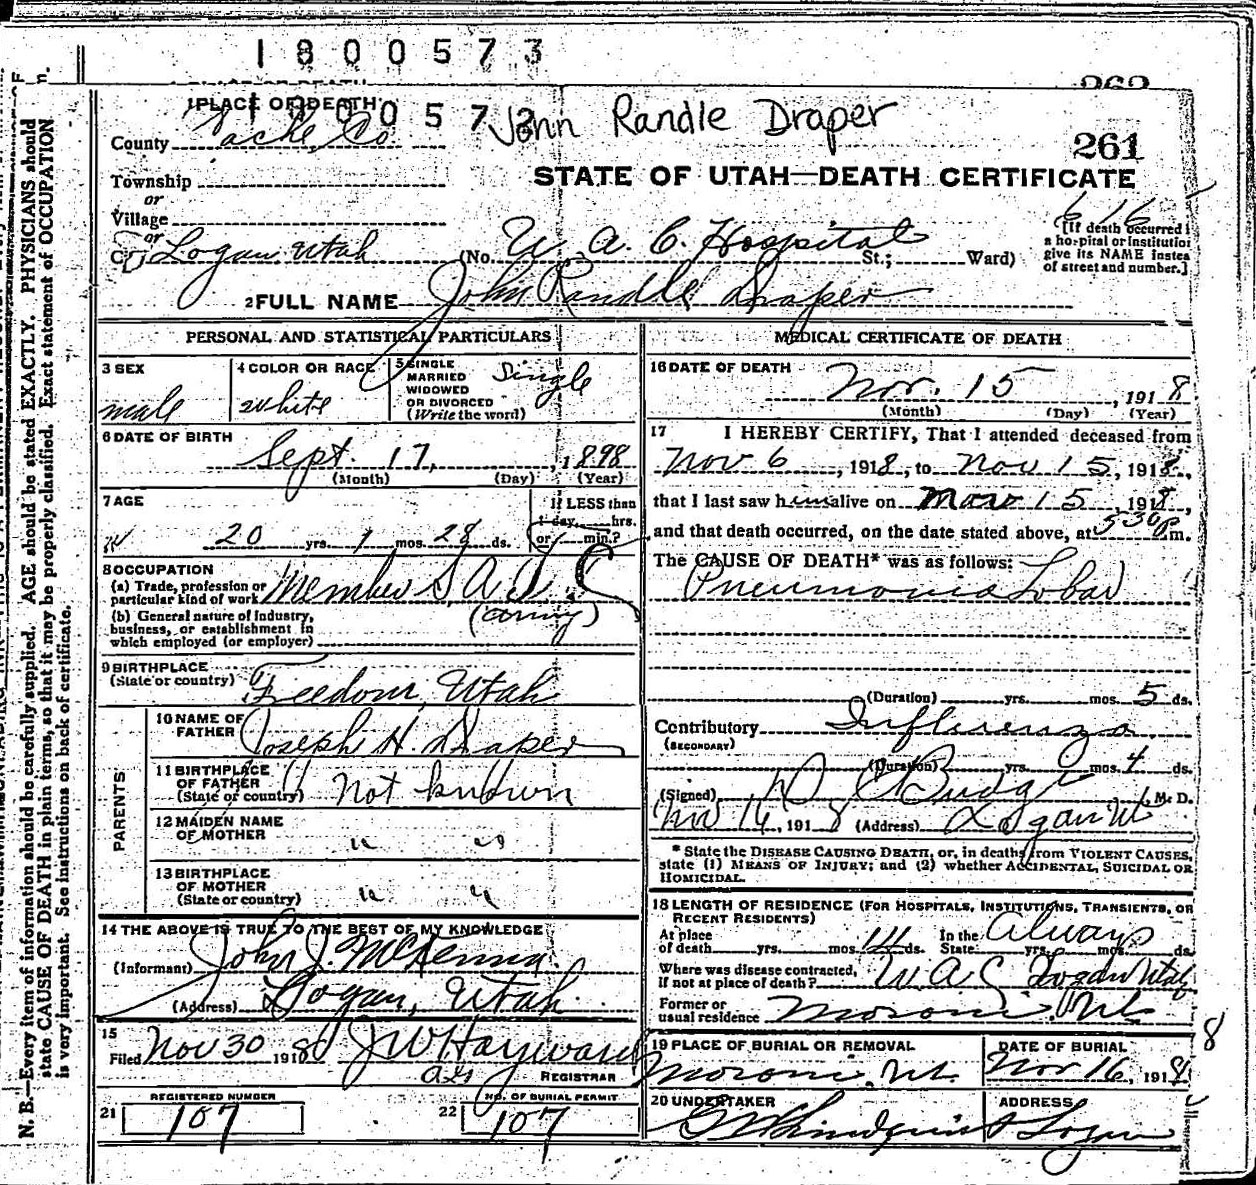 1800573
262
1 PLACE OF DEATH
1800573 John Randle Draper
County Cache, Co
261
Township
STATE OF UTAH—DEATH CERTIFICATE
or
Village
616
or
[If death occurred
a hospital or institution
give its NAME instea
of street and number.]
Logan Utah (No. U. A. C. Hospital St.; Ward)
2 FULL NAME John Randle Draper
PERSONAL AND STATISTICAL PARTICULARS
3 SEX
male
4 COLOR OR RACE
white
5 SINGLE
MARRIED
WIDOWED
OR DIVORCED
(Write the word)
Single
6 DATE OF BIRTH
Sept. 17, , 1898
(Month) (Day) (Year)
7 AGE
20 yrs. 1 mos. 28 ds.
If LESS than
1 day, hrs.
or min.?
8 OCCUPATION
(a) Trade, profession or
particular kind of work Member S. A. T. C
(b) General nature of industry,
business, or establishment in
which employed (or employer)
(army)
9 BIRTHPLACE
(State or country) Freedom, Utah
PARENTS
10 NAME OF
FATHER Joseph H. Draper
11 BIRTHPLACE
OF FATHER
(State or country) Not known
12 MAIDEN NAME
OF MOTHER " "
13 BIRTHPLACE
OF MOTHER
(State or country) " "
14 THE ABOVE IS TRUE TO THE BEST OF MY KNOWLEDGE
(Informant) John J. McKenna
(Address) Logan, Utah
15
Filed Nov 30 1918 J W Hayward
REGISTRAR
21 REGISTERED NUMBER
107
22 NO. OF BURIAL PERMIT
107
MEDICAL CERTIFICATE OF DEATH
16 DATE OF DEATH
Nov. 15 , 1918
(Month) (Day) (Year)
17 I HEREBY CERTIFY, That I attended deceased from
Nov 6 , 1918, to Nov 15, 1918,
that I last saw him alive on Nov 15 1918,
and that death occurred, on the date stated above, at 530 p.m.
The CAUSE OF DEATH* was as follows:
Pneumonia Lobar
(Duration) yrs. mos. 5 ds.
Contributory Influenza
(SECONDARY)
(Duration) yrs. mos. 4 ds.
(Signed) D C Budge, M. D.
Nov 16, 1918 (Address) Logan Ut
* State the DISEASE CAUSING DEATH, or, in deaths from VIOLENT CAUSES,
state (1) MEANS OF INJURY; and (2) whether ACCIDENTAL, SUICIDAL OR
HOMICIDAL.
18 LENGTH OF RESIDENCE (FOR HOSPITALS, INSTITUTIONS, TRANSIENTS, OR
RECENT RESIDENTS)
At place
of death yrs. mos. 14 ds. In the
State Always yrs. mos. ds.
Where was disease contracted,
if not at place of death? U A C Logan Utah
Former or
usual residence Moroni, Ut
19 PLACE OF BURIAL OR REMOVAL
Moroni, Ut.
DATE OF BURIAL
Nov 16, 1918
8
20 UNDERTAKER
Lindquist
ADDRESS
Logan
N. B.—Every item of information should be carefully supplied. AGE should be stated EXACTLY. PHYSICIANS should
state CAUSE OF DEATH in plain terms, so that it may be properly classified. Exact statement of OCCUPATION
is very important. See instructions on back of certificate.